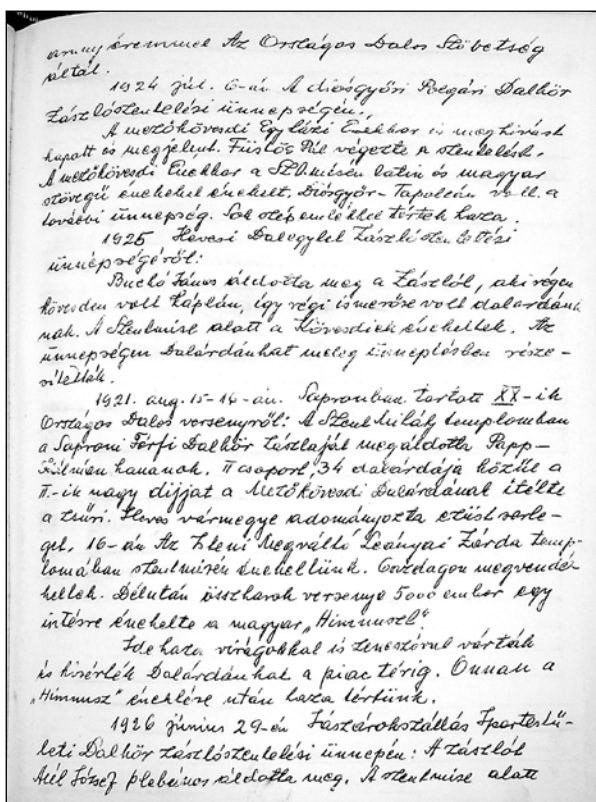 arany éremmel Az Országos Dalos Szövetség
által.
1924 júl. 6-án A diósgyőri Polgári Dalkör
Zászlószentelési ünnepségén.
A mezőkövesdi Egyházi Énekkar is meghívást
kapott és megjelent. Füzlős Pál végezte a szentelést.
A mezőkövesdi Énekkar a Szt. misén latin és magyar
szövegű énekeket énekelt. Diósgyőr-Tapolcán volt a
további ünnepség. Sok szép emlékkel tértek haza.
1925 Hevesi Dalegylet Zászló szentelési
ünnepségéről:
Buchó János áldotta meg a Zászlót, aki régen
kövesden volt káplán, így régi ismerőse volt dalárdánk
nak. A Szentmise alatt a Kövesdiek énekeltek. Az
ünnepségen Dalárdánkat meleg ünneplésben része-
sítették.
1921. aug. 15-16-án. Sopronban tartott XX-ik
Országos Dalos versenyről: A Szent Mihály templomban
a Soproni Férfi Dalkör zászlaját megáldotta Papp-
Kálmán kanonok. II csoport, 34 dalárdája közül a
II.-ik nagy díjjat a Mezőkövesdi Dalárdának ítélte
a zsűri. Heves vármegye adományozta ezüst serle-
get. 16-án Az Isteni Megváltó Leányai Zárda temp-
lomában szentmisén énekeltünk. Gazdagon megvendé
keltek. Délután összkarok versenye 5000 ember egy
intésre énekelte a magyar „Himnuszt".
Ide haza virágokkal és zeneszóval várták
és kisérték Dalárdánkat a piac térig. Onnan a
„Himnusz" éneklése után haza tértünk.
1926 június 29-én Jászárokszállás Ipartestü-
leti Dalkör zászlószentelési ünnepén: A zászlót
József plebános áldotta meg. A szentmise alatt